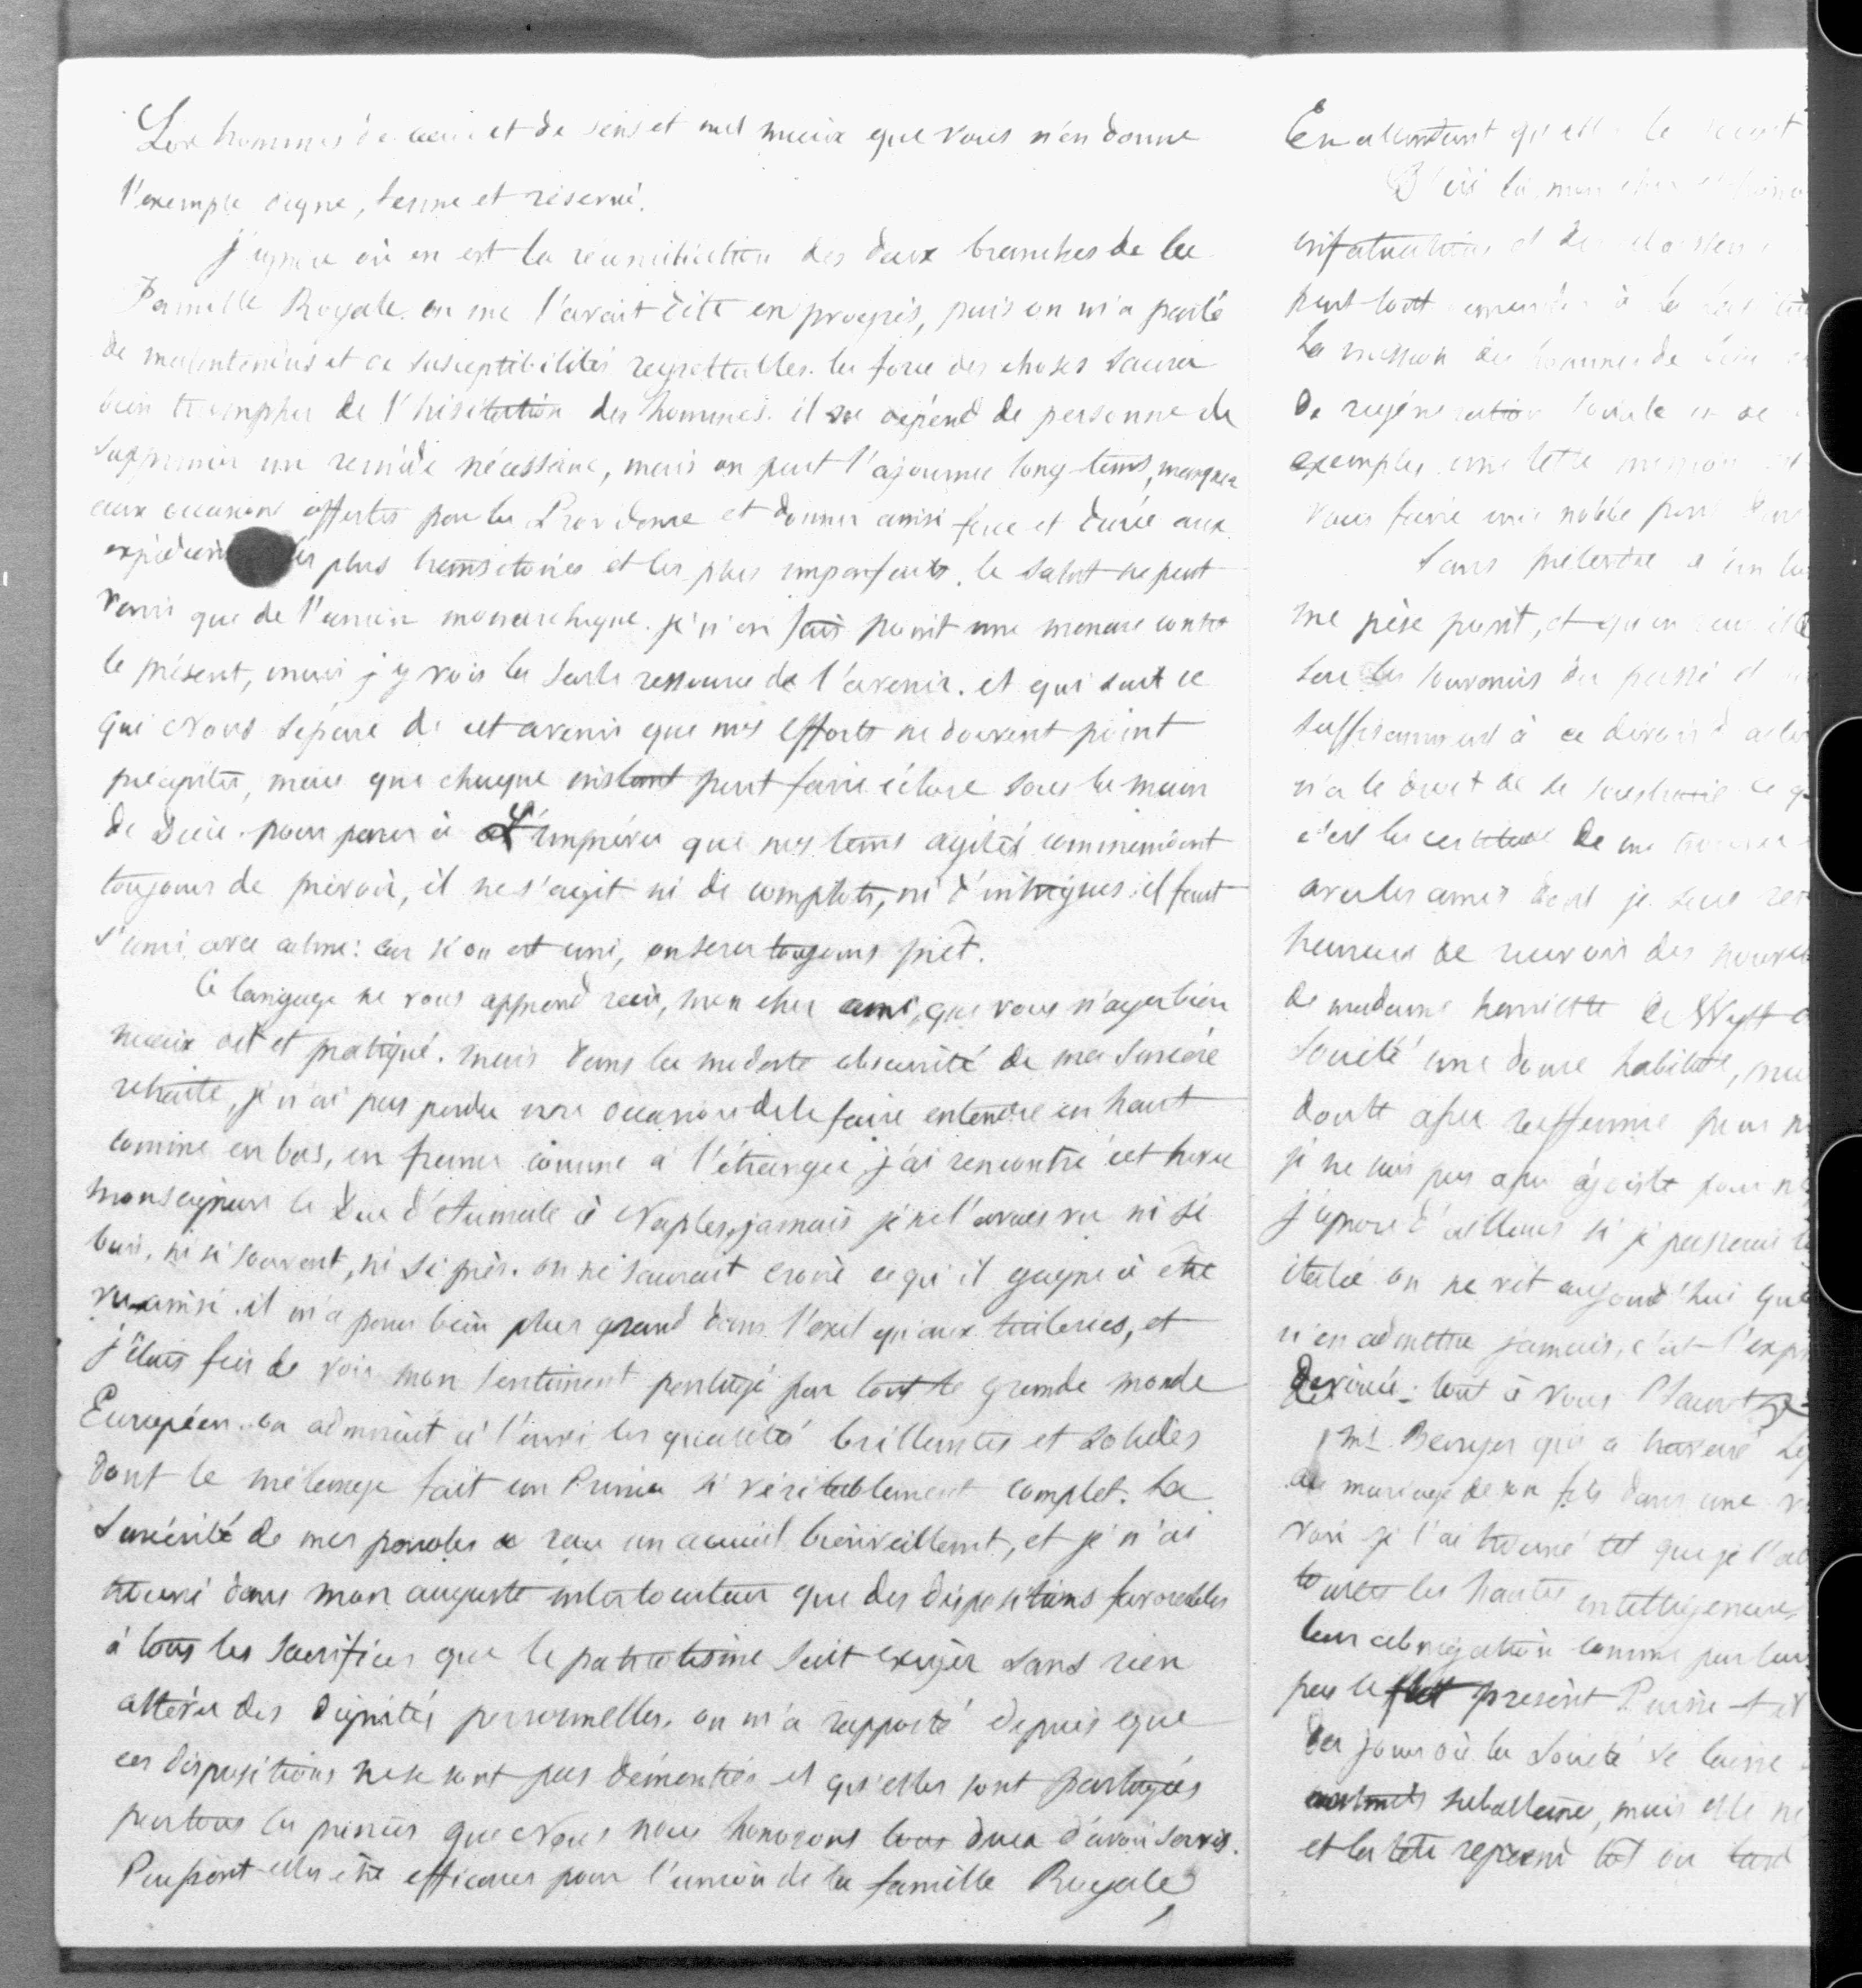 Les hommes de cœur et de sens et nul mieux que vous n'en donne
l'exemple digne, ferme et réservé.
j'ignore où en est la réconciliation des deux branches de la
Famille Royale. on me l'avait dite en progrès, puis on m'a parlé
de malentendus et de susceptibilités regrettables. la force des choses saura
bien triompher de l'hésitation des hommes. il ne dépend de personne de
supprimer un remède nécessaire, mais on peut l'ajourner long-tems, manquer
aux occasions offertes par la Providence et donner ainsi force et durée aux
expédients les plus transitoires et les plus imparfaits. le salut ne peut
venir que de l'union monarchique. je n'en fais point une menace contre
le présent, mais j'y vois la seule ressource de l'avenir. et qui sait ce
qui Nous sépare de cet avenir que nos efforts ne doivent point
précipiter, mais que chaque instant peut faire éclore sous la main
de Dieu. pour parer à L'imprévu que nos tems agités commandent
toujours de prévoir, il ne s'agit ni de complots, ni d'intrigues: il faut
s'unir avec calme: car si on est uni, on sera toujours prêt.
Ce langage ne vous apprend rien, mon cher ami, que vous n'ayez bien
mieux dit et pratiqué. mais dans la modeste obscurité de ma sincère
retraite, je n'ai pas perdu une occasion de le faire entendre en haut
comme en bas, en france comme à l'étranger. j'ai rencontré cet hiver
monseigneur le Duc d'Aumale à Naples. jamais je ne l'avais vu ni si
bien, ni si souvent, ni si près. on ne saurait croire ce qu'il gagne à être
vu ainsi. il m'a paru bien plus grand dans l'exil qu'aux tuileries, et
j'étais fier de voir mon sentiment partagé par tout le grande monde
Européen. on admirait à l'envi les qualités brillantes et solides
dont le mélange fait un Prince si véritablement complet. La
sincérité de mes paroles a reçu un accueil bienveillant, et je n'ai
trouvé dans mon auguste interlocuteur que des dispositions favorables
à tous les sacrifices que le patriotisme sait exiger sans rien
altérer des dignités personnelles. on m'a rapporté depuis que
ces dispositions ne se sont pas démenties et qu'elles sont partagées
par tous les princes que Nous nous honorons tous deux d'avoir servis.
Puissent-elles être efficaces pour l'union de la famille Royale,
En attendant qu'elle le
mon cher
infatuations et des
peut tout
La mission des hommes de
De régénération sociale et de
exemples. une telle mission est
vous faire une noble part dans
Sans prétendre à un
me pèse point, et qu'on
sur les souvenirs du passé et
suffisamment à ce devoir
n'a le droit de se soustraire. ce
c'est la certitude de me trouver
avec les amis dont je suis
heureux de recevoir des
de madame henriette de Witt
société une douce habitude,
doute assez raffermie pour
je ne suis pas assez égoïste pour
j'ignore d'ailleurs si je passerai
italie. on ne vit aujourd'hui que
n'en admettre jamais, c'est l'
dévoué. tout à vous
mr Berryer qui a traversé
du mariage de son fils dans une
voir. je l'ai trouvé tel que je l'
toutes les hautes intelligences,
leur abnégation comme par leur
pas le présent
des jours où la société se laisse
subalterne, mais elle ne
et la tête reprend tôt ou tard